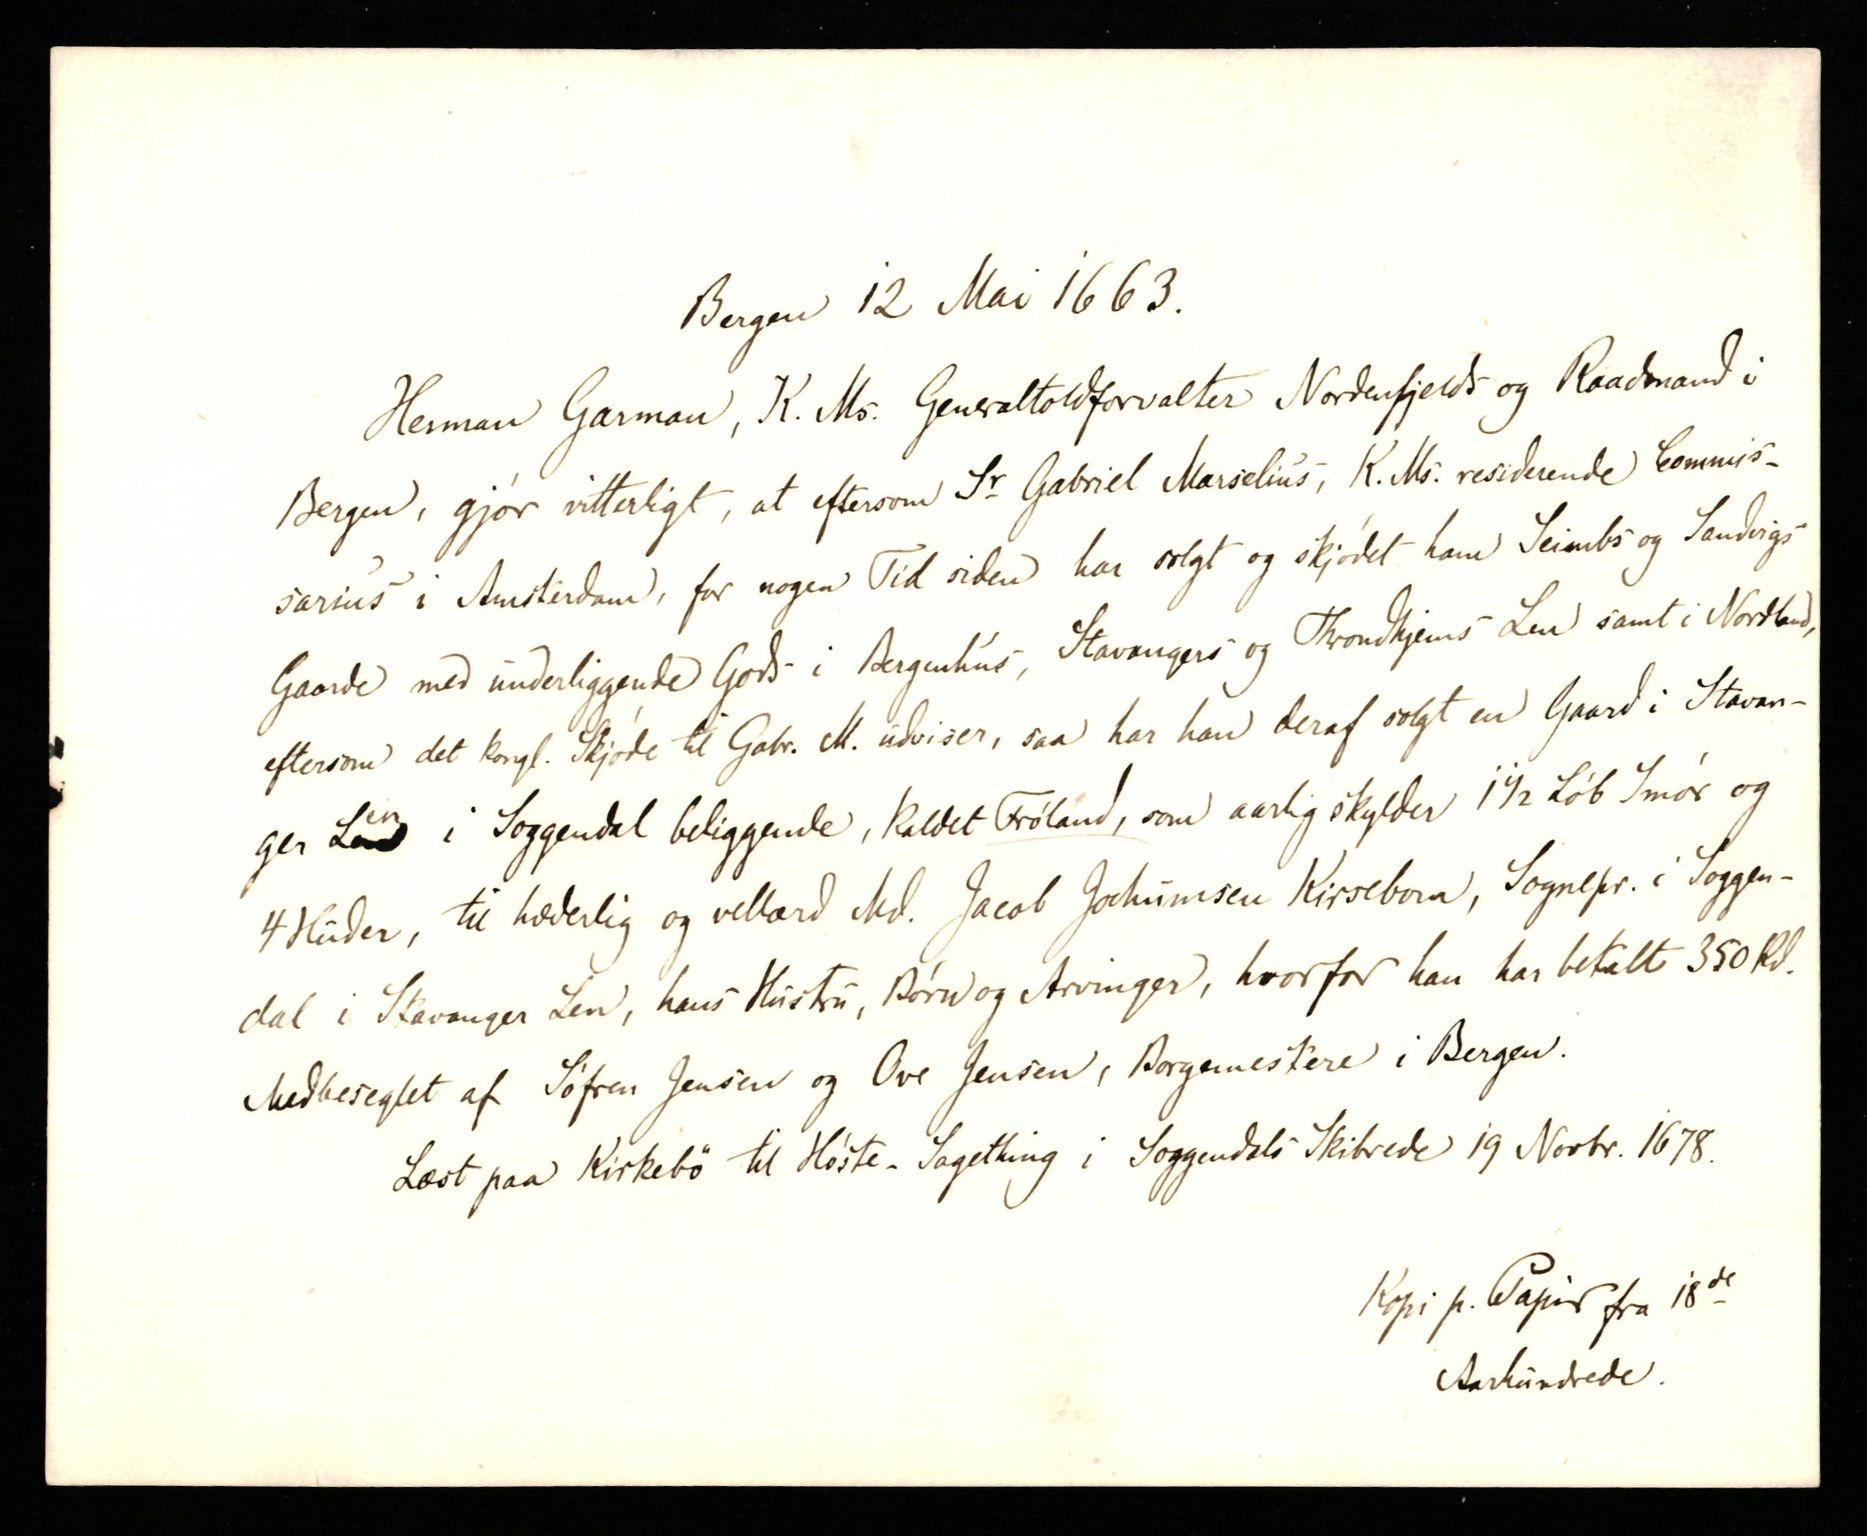 Bergen 12 Mai 1663.
Herman Garman, K. Ms. Generaltoldforvalter Nordenfjelds og Raadmand i
Bergen, gjór vitterligt, at eftersom Sr Gabriel Marselius, K. Ms. residerende Commis-
sarius i Amsterdam, for nogen Tid siden har solgt og skjódet ham Seimbs og Sandvigs
Gaarde med underliggende Gods i Bergenhus, Stavangers og Throndhjems Len samt i Nordland,
eftersom det kongl. Skjóde til Gabr. M. udviser, saa har han deraf solgt en Gaard i Stavan-
ger Len i Soggendal beliggende, kaldet Fróland, som aarlig skylder 1 1/2 Lób Smór og
4 Huder, til hæderlig og vellærd Md. Jacob Jochumsen Kirsebom, Sognepr. i Soggen-
dal i Stavanger Len, hans Hustru, Bórn og Arvinger, hvorfor han har betalt 350 Rd.
Medbeseglet af Sófren Jensen og Ove Jensen, Borgemestere i Bergen.
Læst paa Kirkebö til Hóste-Sagething i Soggendals Skibrede 19 Novbr. 1678.
Kopi p. Papir fra 18de
Aarhundrede.